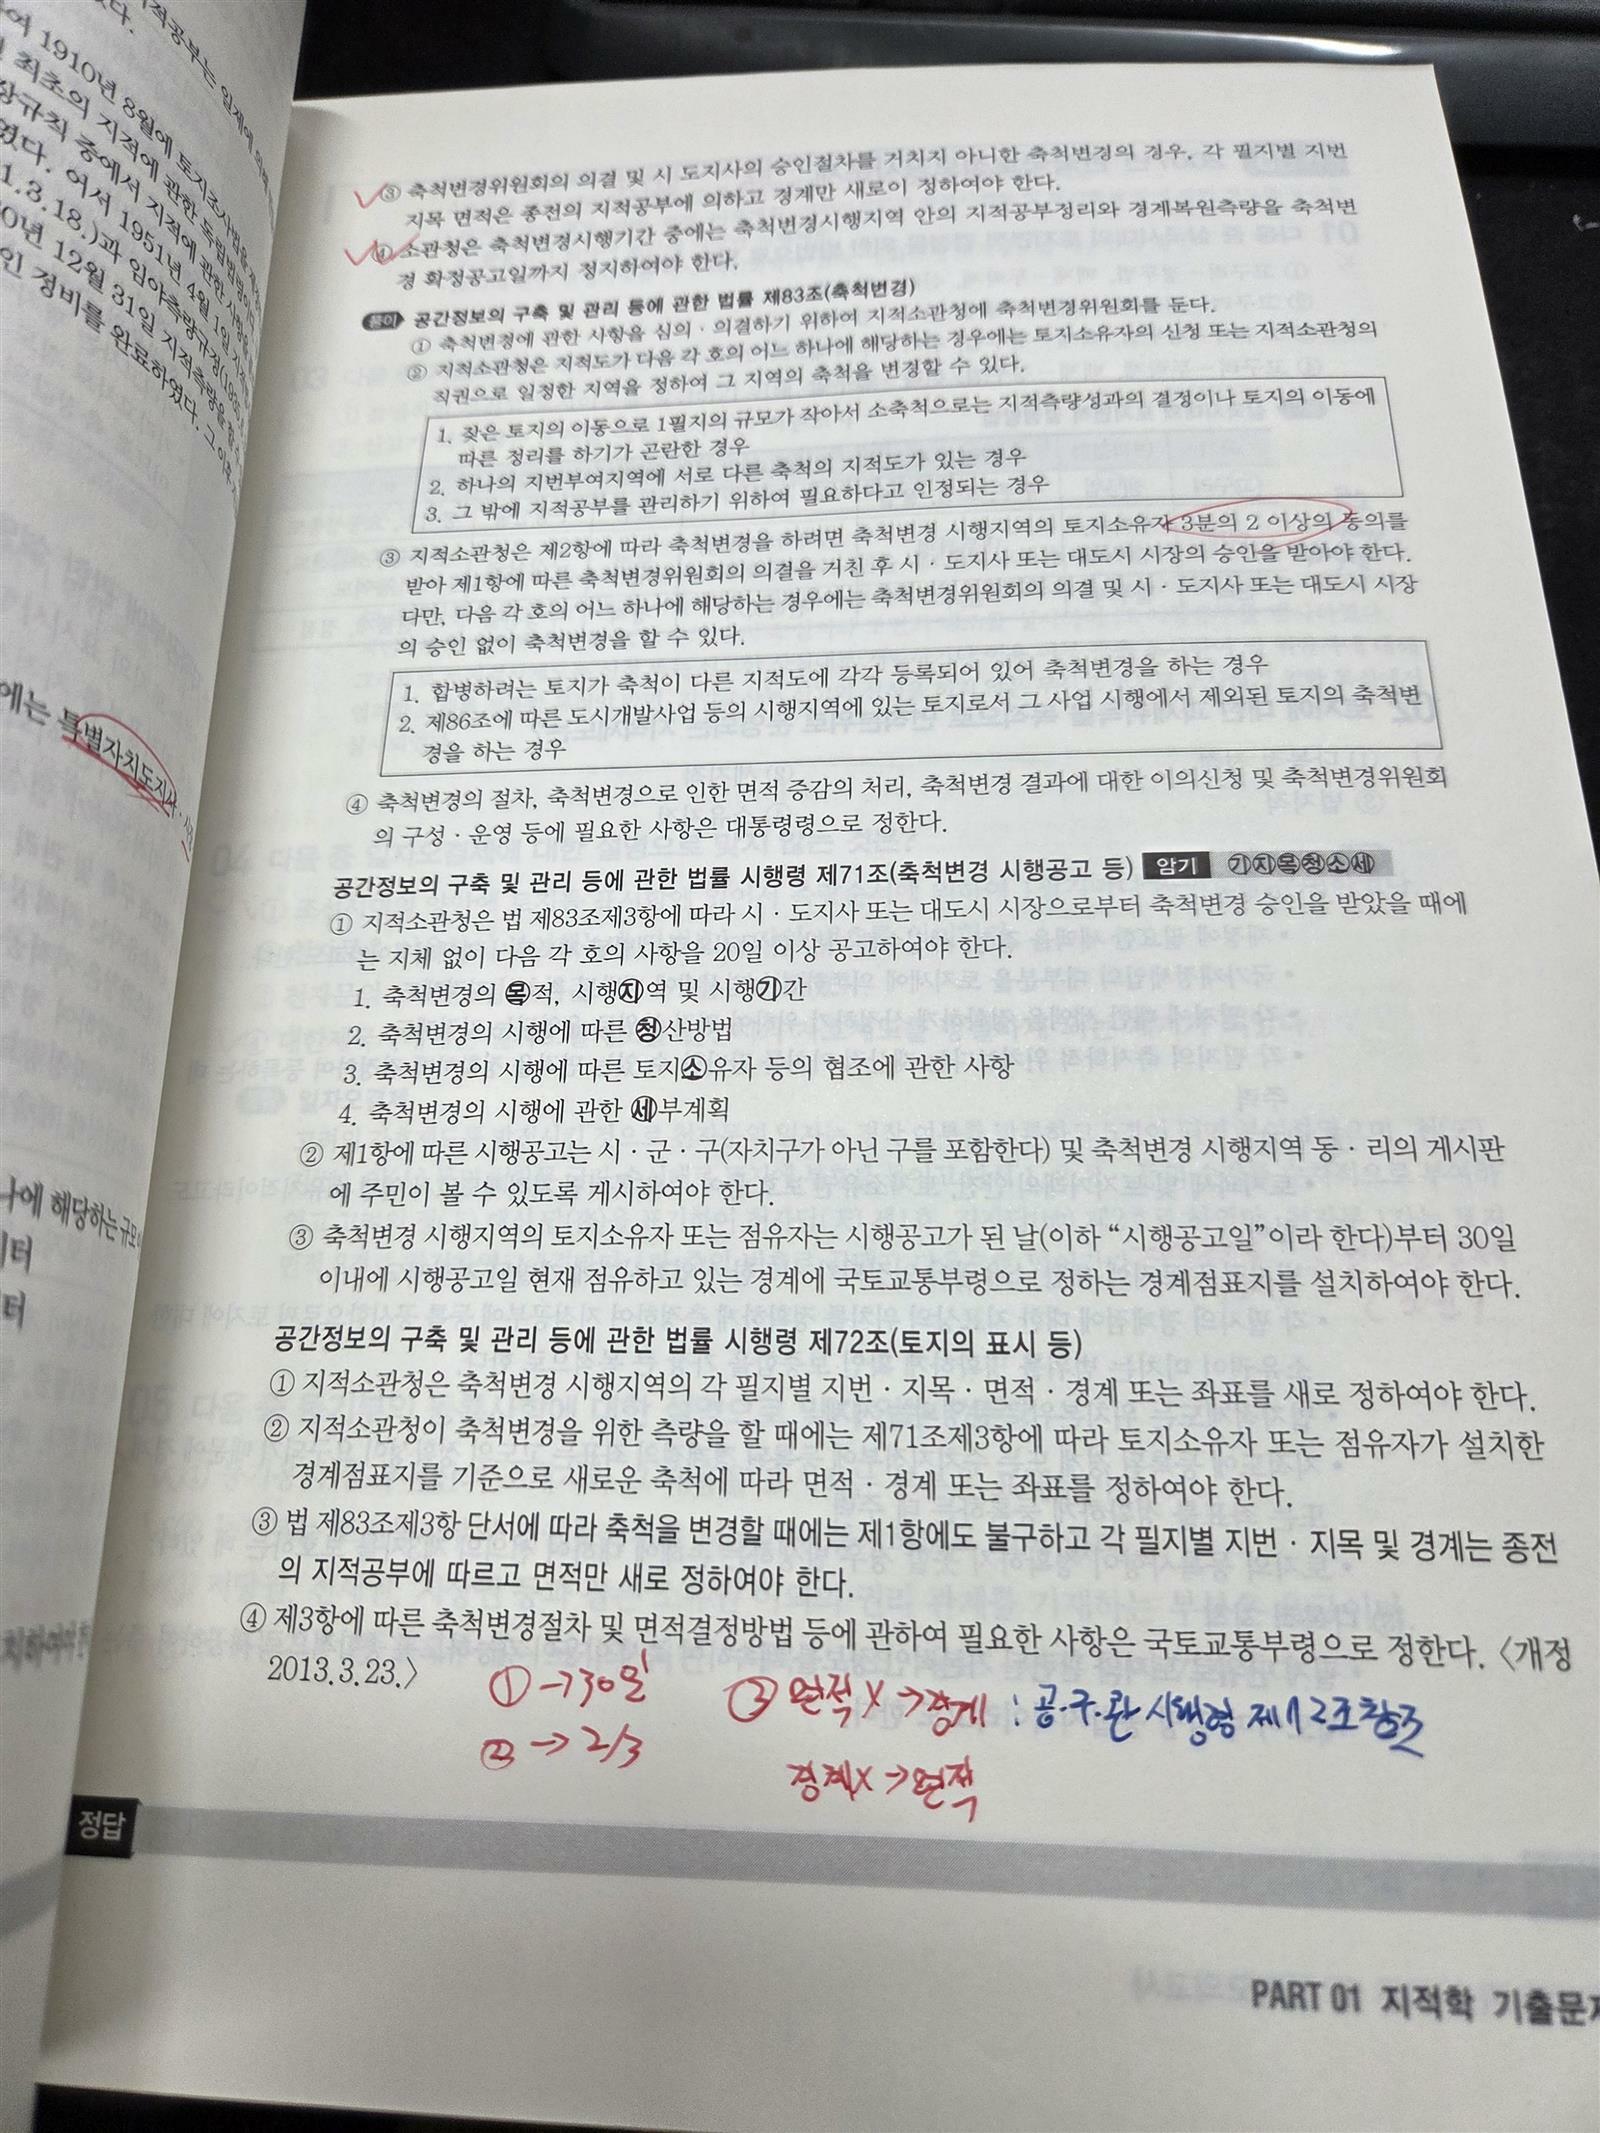 적공부는 일제에 의해
여 1910년 8월에 토지조사법을
최초의 지적에 관한 독립법령이
상규칙 중에서 지적에 관한 사항을
였다. 어서 1951년 4월 1일 지적
1.3.18.)과 임야측량규정(1935.
0년 12월 31일 지적측량을
인 정비를 완료하였다. 그 이후
에는 특별자치도지사 · 시장
나에 해당하는 규모
터
터
치하여야
③ 축척변경위원회의 의결 및 시 도지사의 승인절차를 거치지 아니한 축척변경의 경우, 각 필지별 지번
지목 면적은 종전의 지적공부에 의하고 경계만 새로이 정하여야 한다.
④ 소관청은 축척변경시행기간 중에는 축척변경시행지역 안의 지적공부정리와 경계복원측량을 축척변
경 확정공고일까지 정지하여야 한다.
풀이 공간정보의 구축 및 관리 등에 관한 법률 제83조(축척변경)
① 축척변경에 관한 사항을 심의 · 의결하기 위하여 지적소관청에 축척변경위원회를 둔다.
② 지적소관청은 지적도가 다음 각 호의 어느 하나에 해당하는 경우에는 토지소유자의 신청 또는 지적소관청의
직권으로 일정한 지역을 정하여 그 지역의 축척을 변경할 수 있다.
1. 잦은 토지의 이동으로 1필지의 규모가 작아서 소축척으로는 지적측량성과의 결정이나 토지의 이동에
따른 정리를 하기가 곤란한 경우
2. 하나의 지번부여지역에 서로 다른 축척의 지적도가 있는 경우
3. 그 밖에 지적공부를 관리하기 위하여 필요하다고 인정되는 경우
③ 지적소관청은 제2항에 따라 축척변경을 하려면 축척변경 시행지역의 토지소유자 3분의 2 이상의 동의를
받아 제1항에 따른 축척변경위원회의 의결을 거친 후 시 · 도지사 또는 대도시 시장의 승인을 받아야 한다.
다만, 다음 각 호의 어느 하나에 해당하는 경우에는 축척변경위원회의 의결 및 시 · 도지사 또는 대도시 시장
의 승인 없이 축척변경을 할 수 있다.
1. 합병하려는 토지가 축척이 다른 지적도에 각각 등록되어 있어 축척변경을 하는 경우
2. 제86조에 따른 도시개발사업 등의 시행지역에 있는 토지로서 그 사업 시행에서 제외된 토지의 축척변
경을 하는 경우
④ 축척변경의 절차, 축척변경으로 인한 면적 증감의 처리, 축척변경 결과에 대한 이의신청 및 축척변경위원회
의 구성 · 운영 등에 필요한 사항은 대통령령으로 정한다.
공간정보의 구축 및 관리 등에 관한 법률 시행령 제71조(축척변경 시행공고 등) 암기 기지목청소세
① 지적소관청은 법 제83조제3항에 따라 시 · 도지사 또는 대도시 시장으로부터 축척변경 승인을 받았을 때에
는 지체 없이 다음 각 호의 사항을 20일 이상 공고하여야 한다.
1. 축척변경의 목적, 시행지역 및 시행기간
2. 축척변경의 시행에 따른 청산방법
3. 축척변경의 시행에 따른 토지소유자 등의 협조에 관한 사항
4. 축척변경의 시행에 관한 세부계획
② 제1항에 따른 시행공고는 시 · 군 · 구(자치구가 아닌 구를 포함한다) 및 축척변경 시행지역 동 · 리의 게시판
에 주민이 볼 수 있도록 게시하여야 한다.
③ 축척변경 시행지역의 토지소유자 또는 점유자는 시행공고가 된 날(이하 “시행공고일”이라 한다)부터 30일
이내에 시행공고일 현재 점유하고 있는 경계에 국토교통부령으로 정하는 경계점표지를 설치하여야 한다.
공간정보의 구축 및 관리 등에 관한 법률 시행령 제72조(토지의 표시 등)
① 지적소관청은 축척변경 시행지역의 각 필지별 지번 · 지목 · 면적 · 경계 또는 좌표를 새로 정하여야 한다.
② 지적소관청이 축척변경을 위한 측량을 할 때에는 제71조제3항에 따라 토지소유자 또는 점유자가 설치한
경계점표지를 기준으로 새로운 축척에 따라 면적 · 경계 또는 좌표를 정하여야 한다.
③ 법 제83조제3항 단서에 따라 축척을 변경할 때에는 제1항에도 불구하고 각 필지별 지번 · 지목 및 경계는 종전
의 지적공부에 따르고 면적만 새로 정하여야 한다.
④ 제3항에 따른 축척변경절차 및 면적결정방법 등에 관하여 필요한 사항은 국토교통부령으로 정한다. 〈개정
2013.3.23.〉
① → 30일
② → 2/3
③ 면적 X → 경계 : 공.구.관 시행령 제72조참조
경계X → 면적
정답
PART 01 지적학 기출문제